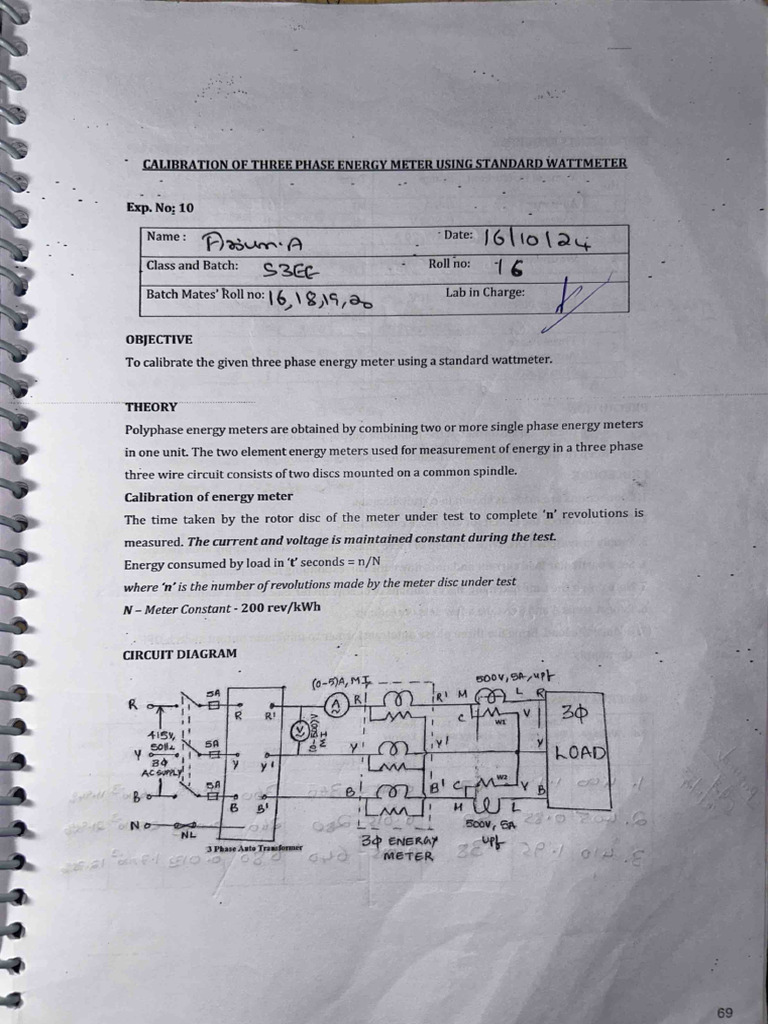 CALIBRATION OF THREE PHASE ENERGY METER USING STANDARD WATTMETER
Exp. No: 10
Name : A Date: 16/10/24
Class and Batch: S3EE Roll no: 16
Batch Mates' Roll no: 16,18,19,20 Lab in Charge:
OBJECTIVE
To calibrate the given three phase energy meter using a standard wattmeter.
THEORY
Polyphase energy meters are obtained by combining two or more single phase energy meters
in one unit. The two element energy meters used for measurement of energy in a three phase
three wire circuit consists of two discs mounted on a common spindle.
Calibration of energy meter
The time taken by the rotor disc of the meter under test to complete 'n' revolutions is
measured. The current and voltage is maintained constant during the test.
Energy consumed by load in 't' seconds = n/N
where 'n' is the number of revolutions made by the meter disc under test
N – Meter Constant - 200 rev/kWh
CIRCUIT DIAGRAM
(0-5)A, MI 500V, 5A, upf
R 5A R R' A R R' M L R
C W1 V
415V, 50Hz 3Φ AC SUPPLY
V 0-500V MI
3Φ LOAD
Y 5A Y Y' Y Y' Y
B 5A B B' B B' C W2 V B
M L
N NL
500V, 5A upf
3 Phase Auto Transformer
3Φ ENERGY METER
69